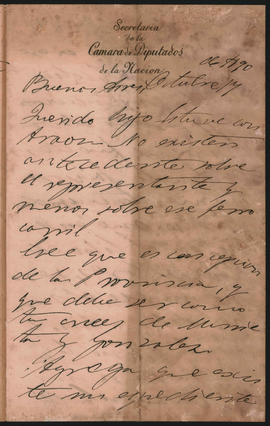 Secretaría
de la
Camara de Diputados
de la Nación
de 1890
Buenos Aires Octubre 14
Querido hijo Estuve con
Araoz. No existen
antecedentes sobre
el representante y
menos sobre ese ferro
carril
Cree que es concesion
de la Provincia, y
que debe ser como
tu crees de
ta y Gonzalez.
Agrega que exis
te un espediente